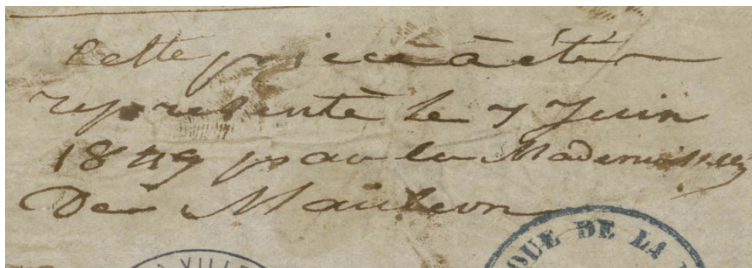 Cette pièce à été
représentè le 7 Juin
1849 par les Mademoiselles
De Mauleon
VILLE
QUE DE LA